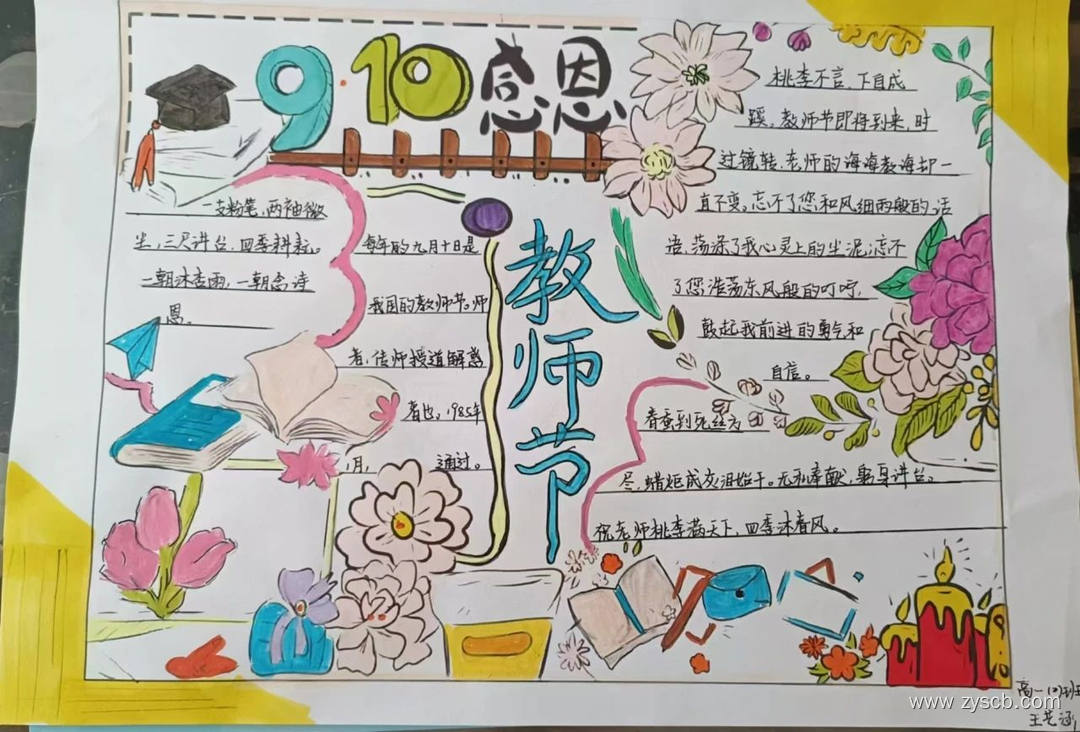 9.10 感恩
教师节
一支粉笔,两袖微
尘,三尺讲台,四季耕耘。
一朝沐杏雨,一朝念诗
恩。
每年的九月十日是
我国的教师节。师
者,传师授道解惑
者也,1985年
1月, 通过。
桃李不言,下自成
蹊。教师节即将到来,时
过镜转,老师的海海教海却一
直不变。忘不了您和风细雨般的话
语,荡涤了我心灵上的尘泥;忘不
了您浩荡东风般的叮咛,
鼓起我前进的勇气和
自信。
春蚕到死丝方
尽,蜡炬成灰泪始干。无私奉献,躬身讲台。
祝老师桃李满天下,四季沐春风。
高一
www.zyscb.com